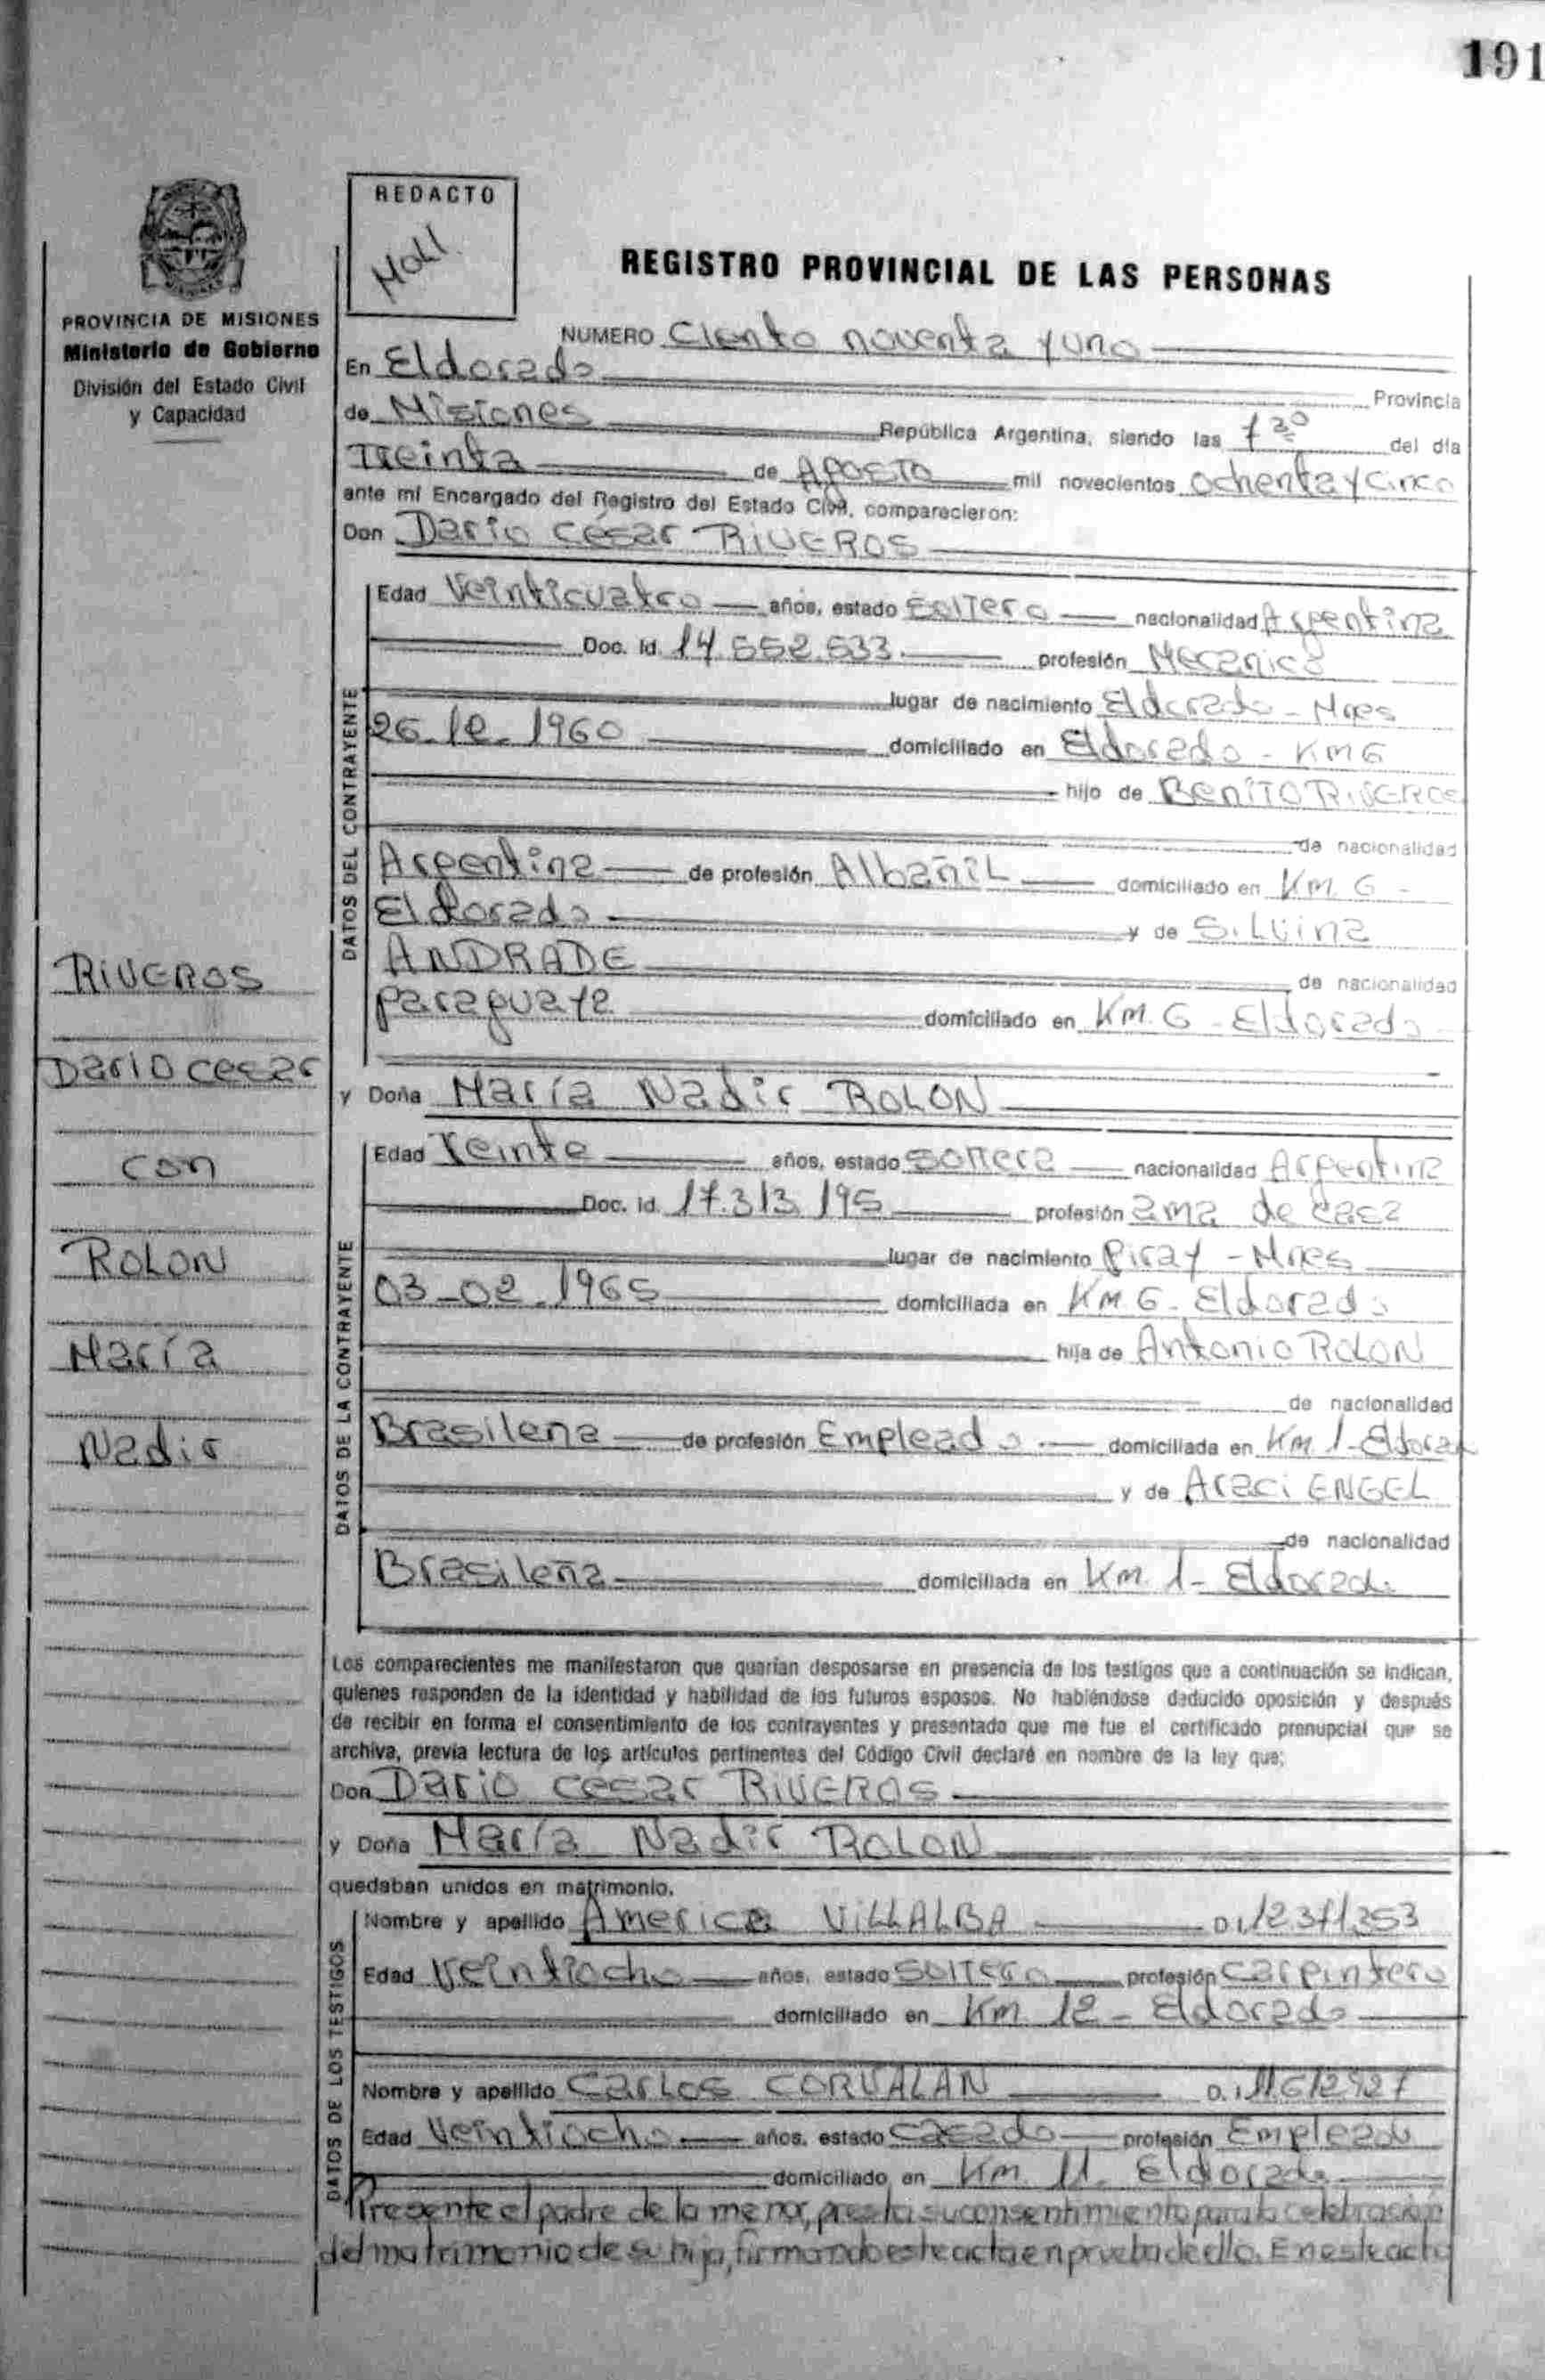 191
REDACTO
MOLL
REGISTRO PROVINCIAL DE LAS PERSONAS
PROVINCIA DE MISIONES
Ministerio de Gobierno
División del Estado Civil
y Capacidad
NUMERO Ciento noventa y uno
En Eldorado
Provincia
de Misiones República Argentina, siendo las 7 30 del día
Treinta de Agosto mil novecientos ochenta y cinco
ante mí Encargado del Registro del Estado Civil, comparecieron:
Don Dario césar RIVEROS
DATOS DEL CONTRAYENTE
Edad Veinticuatro años, estado Soltero nacionalidad Argentina
Doc. Id. 14.552.533 profesión Mecanico
lugar de nacimiento Eldorado - Mnes
26-12-1960 domiciliado en Eldorado - Km 6
hijo de Benito RIVEROS
de nacionalidad
Argentina de profesión Albañil domiciliado en Km. 6 -
Eldorado y de Silvina
ANDRADE de nacionalidad
paraguaya domiciliado en Km. 6 - Eldorado
y Doña María Nadir ROLON
DATOS DE LA CONTRAYENTE
Edad Veinte años, estado Soltera nacionalidad Argentina
Doc. Id. 17.313.195 profesión ama de casa
lugar de nacimiento Piray - Mnes
03-02-1965 domiciliada en Km. 6 - Eldorado
hija de Antonio ROLON
de nacionalidad
Brasilena de profesión Empleado domiciliada en Km 1 - Eldorad
y de Araci ENGEL
de nacionalidad
Brasileña domiciliada en Km. 1 - Eldorado
RIVEROS
Dario cesar
con
ROLON
María
Nadir
Los comparecientes me manifestaron que querían desposarse en presencia de los testigos que a continuación se indican,
quienes responden de la identidad y habilidad de los futuros esposos. No habiéndose deducido oposición y después
de recibir en forma el consentimiento de los contrayentes y presentado que me fue el certificado prenupcial que se
archiva, previa lectura de los artículos pertinentes del Código Civil declaré en nombre de la ley que:
Don Dario cesar RIVEROS
y Doña María Nadir ROLON
quedaban unidos en matrimonio.
DATOS DE LOS TESTIGOS
Nombre y apellido Americo VILLALBA D.I. 12371353
Edad Veintiocho años, estado Soltero profesión carpintero
domiciliado en Km 12 - Eldorado
Nombre y apellido Carlos CORVALAN D.I. 11612927
Edad Veintiocho años, estado casado profesión Empleado
domiciliado en Km. 11. Eldorado
Presente el padre de la menor, presta su consentimiento para la celebración
del matrimonio de su hija, firmando este acta en prueba de ello. En este acto